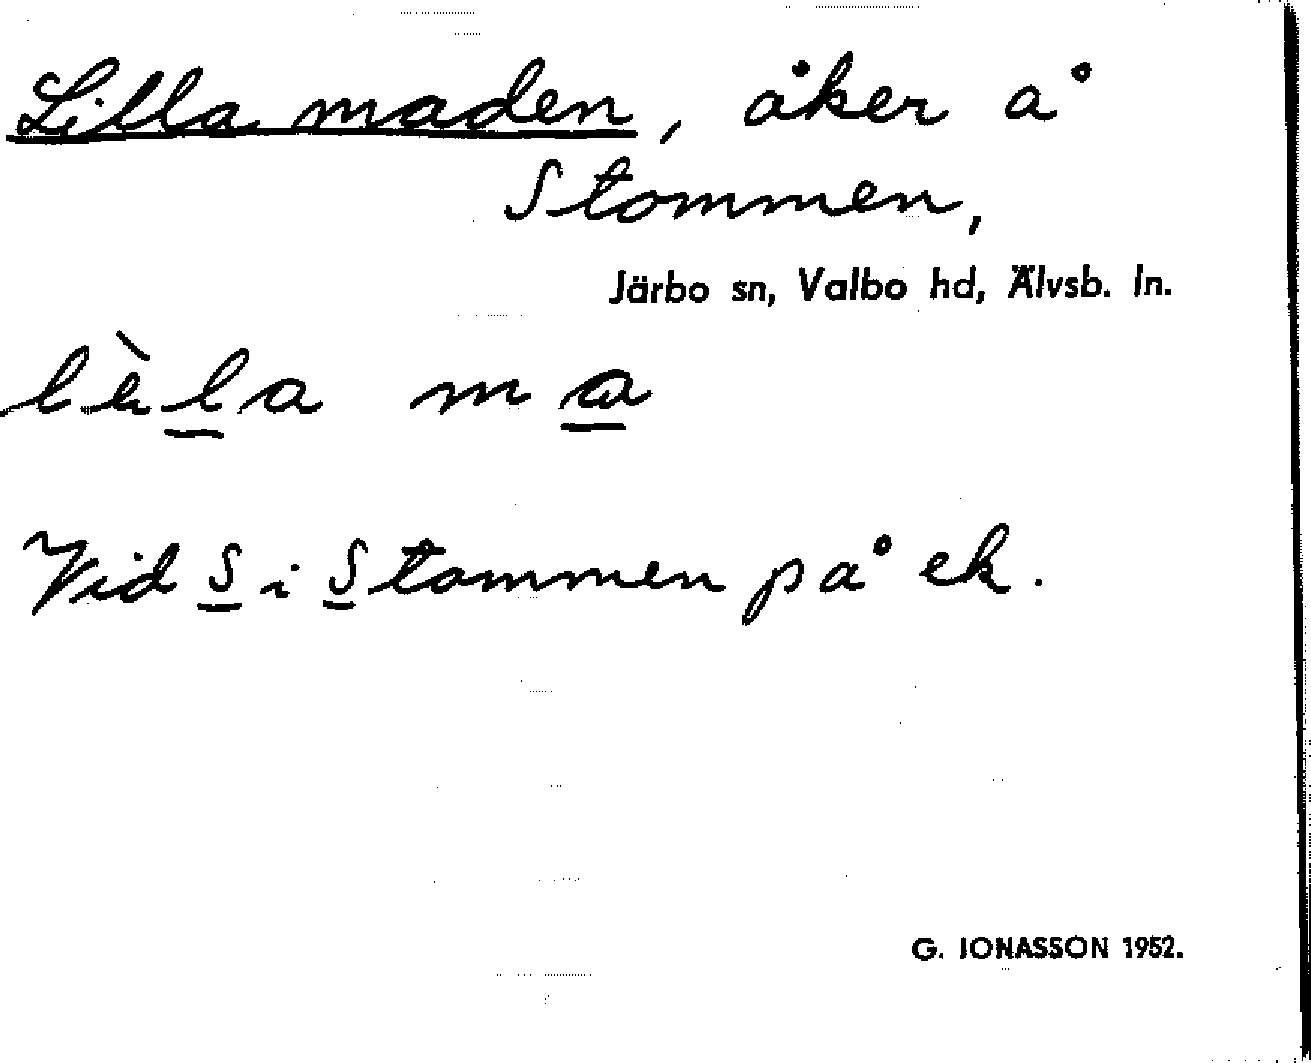 Lilla maden, åker å
Stommen,
Järbo sn, Valbo hd, Älvsb. ln.
lèla ma
Vid S i Stommen på ek.
G. JONASSON 1952.